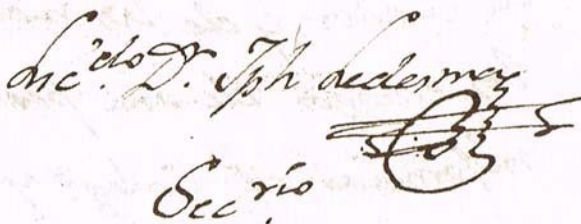 Lic.do Dr. Jph Ledesma
Secrio.